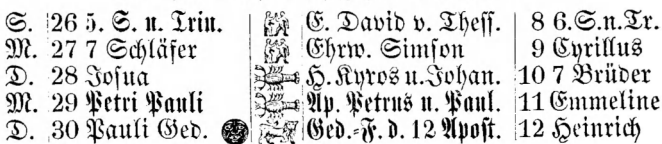 S. 26 5. S. n. Trin. E. David v. Thess. 8 6.S.n.Tr.
M. 27 7 Schläfer Ehrw. Simson 9 Cyrillus
D. 28 Josua H. Kyros u. Johan. 10 7 Brüder
M. 29 Petri Pauli Ap. Petrus u. Paul. 11 Emmeline
D. 30 Pauli Ged. Ged.-F. d. 12 Apost. 12 Heinrich